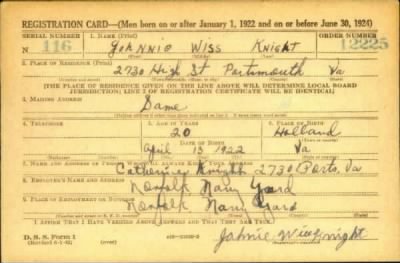 REGISTRATION CARD—(Men born on or after January 1, 1922 and on or before June 30, 1924)
SERIAL NUMBER 1. NAME (Print) ORDER NUMBER
N 116 Johnnie Wiss Knight 12225
(First) (Middle) (Last)
2. PLACE OF RESIDENCE (Print)
2730 High St Portsmouth Va
[THE PLACE OF RESIDENCE GIVEN ON THE LINE ABOVE WILL DETERMINE LOCAL BOARD
JURISDICTION; LINE 2 OF REGISTRATION CERTIFICATE WILL BE IDENTICAL]
3. MAILING ADDRESS
Same
4. TELEPHONE 5. AGE IN YEARS 6. PLACE OF BIRTH
20 Holland
April 13 1922 Va
7. NAME AND ADDRESS OF PERSON WHO WILL ALWAYS KNOW YOUR ADDRESS
Catherine Knight 2730 Ports. Va
8. EMPLOYER'S NAME AND ADDRESS
Norfolk Navy Yard
9. PLACE OF EMPLOYMENT OR BUSINESS
Norfolk Navy Yard
I AFFIRM THAT I HAVE VERIFIED ABOVE ANSWERS AND THAT THEY ARE TRUE.
D. S. S. Form 1
Johnie Wise Knight